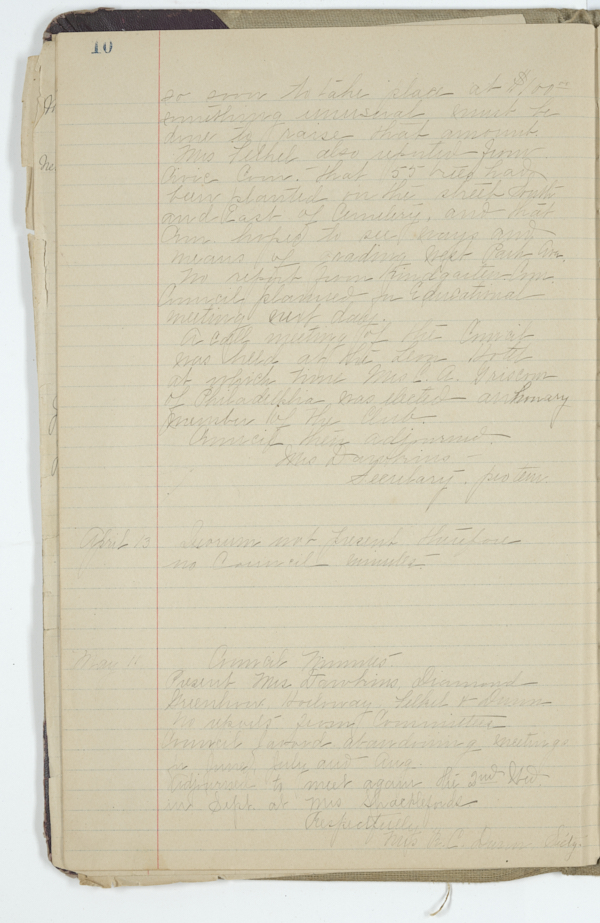 10
so soon to take place at $100
something unusual must be
done to raise that amount.
Mrs. Fishel also reported from
Civic Com. that 155 trees had
been planted on the street South
and East of Cemetery, and that
Com. hoped to see ways and
means of grading West Park Av.
No report from Kindgarten Com.
Council planned for Educational
meeting next day.
A call meeting of the Council
was held at the Leon Hotel
at which time Mrs. C. A. Griscom
of Philadelphia was elected an Honary
member of the Club.
Council then adjourned.
Mrs Dawkins
Secretary protem.
April 13 Quorum not present therefore
no Council minutes.
May 11 Council Minutes
Present Mrs Dawkins, Diamond
Greenhow, Holloway, Fishel & Dunn
No reports from Committees
Council favord abandoning meetings
in June, July and Aug.
Adjourned to meet again the 2nd Wed
in Sept. at Mrs
Respectfully
Mrs Dunn Secty.